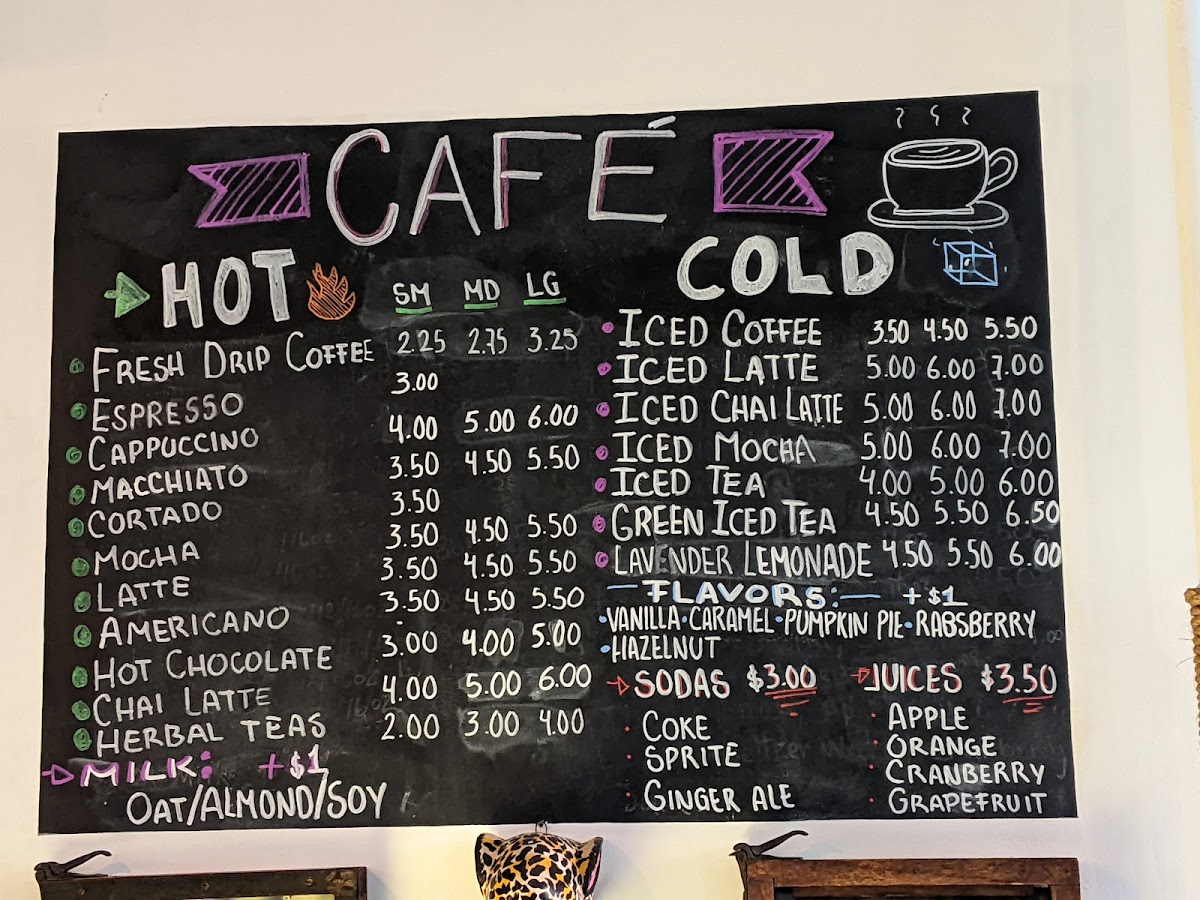 CAFÉ
HOT SM MD LG
FRESH DRIP COFFEE 2.25 2.75 3.25
ESPRESSO 3.00
CAPPUCCINO 4.00 5.00 6.00
MACCHIATO 3.50 4.50 5.50
CORTADO 3.50
MOCHA 3.50 4.50 5.50
LATTE 3.50 4.50 5.50
AMERICANO 3.50 4.50 5.50
HOT CHOCOLATE 3.00 4.00 5.00
CHAI LATTE 4.00 5.00 6.00
HERBAL TEAS 2.00 3.00 4.00
MILK: +$1
OAT/ALMOND/SOY
COLD
ICED COFFEE 3.50 4.50 5.50
ICED LATTE 5.00 6.00 7.00
ICED CHAI LATTE 5.00 6.00 7.00
ICED MOCHA 5.00 6.00 7.00
ICED TEA 4.00 5.00 6.00
GREEN ICED TEA 4.50 5.50 6.50
LAVENDER LEMONADE 4.50 5.50 6.00
— FLAVORS: — +$1
•VANILLA•CARAMEL•PUMPKIN PIE•RABSBERRY
•HAZELNUT
SODAS $3.00
COKE
SPRITE
GINGER ALE
JUICES $3.50
APPLE
ORANGE
CRANBERRY
GRAPEFRUIT